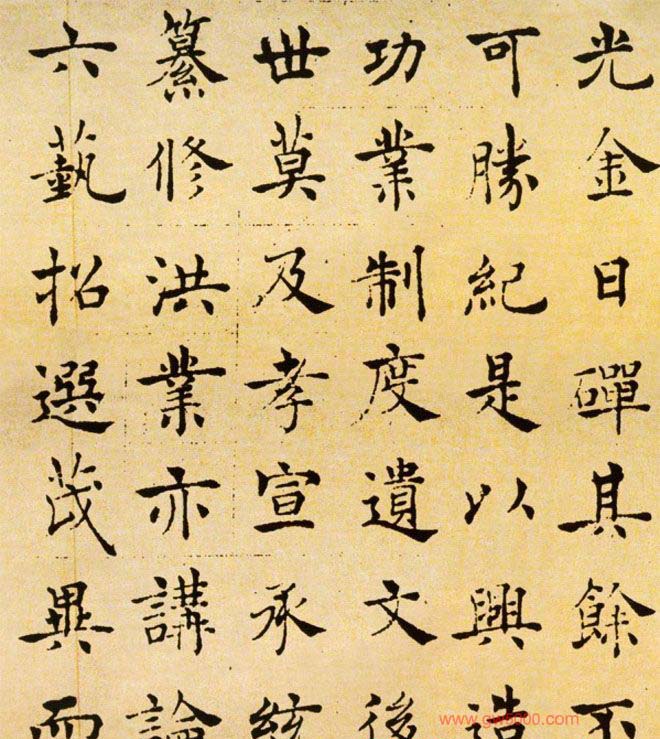 光金日磾其餘不
可勝紀是以興造
功業制度遺文後
世莫及孝宣承統
纂修洪業亦講論
六藝招選茂異而